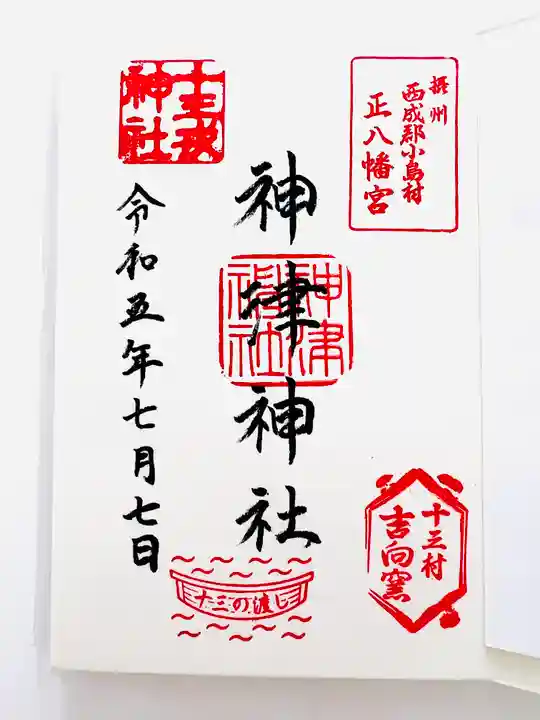 摂州
西成郡小島村
正八幡宮
神津神社
神津
神社
十三村
吉向窯
十三の渡し
令和五年七月七日
神社